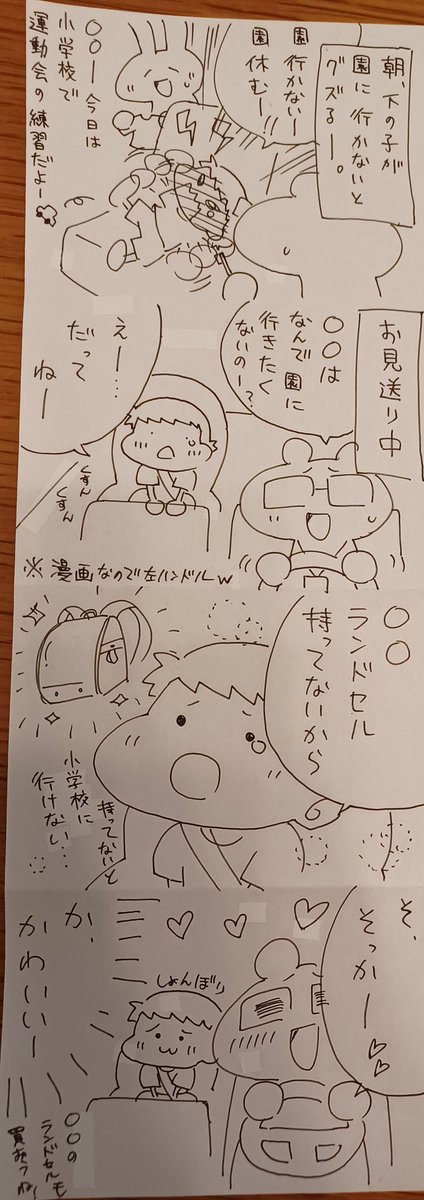 朝、下の子が
園に行かないと
グズるー。
園行かないー
園休むー!!
〇〇ー今日は
小学校で
運動会の練習だよー
お見送り中
〇〇は
なんで園に
行きたく
ないのー?
えー…
だって
ねー
くすん
くすん
※漫画なので左ハンドルw
〇〇
ランドセル
持ってないから
持ってないと
小学校に
行けない…
そ、
そっかー♡♡
しょんぼり
か、
かわいいー
〇〇の
ランドセルも
買おうね!